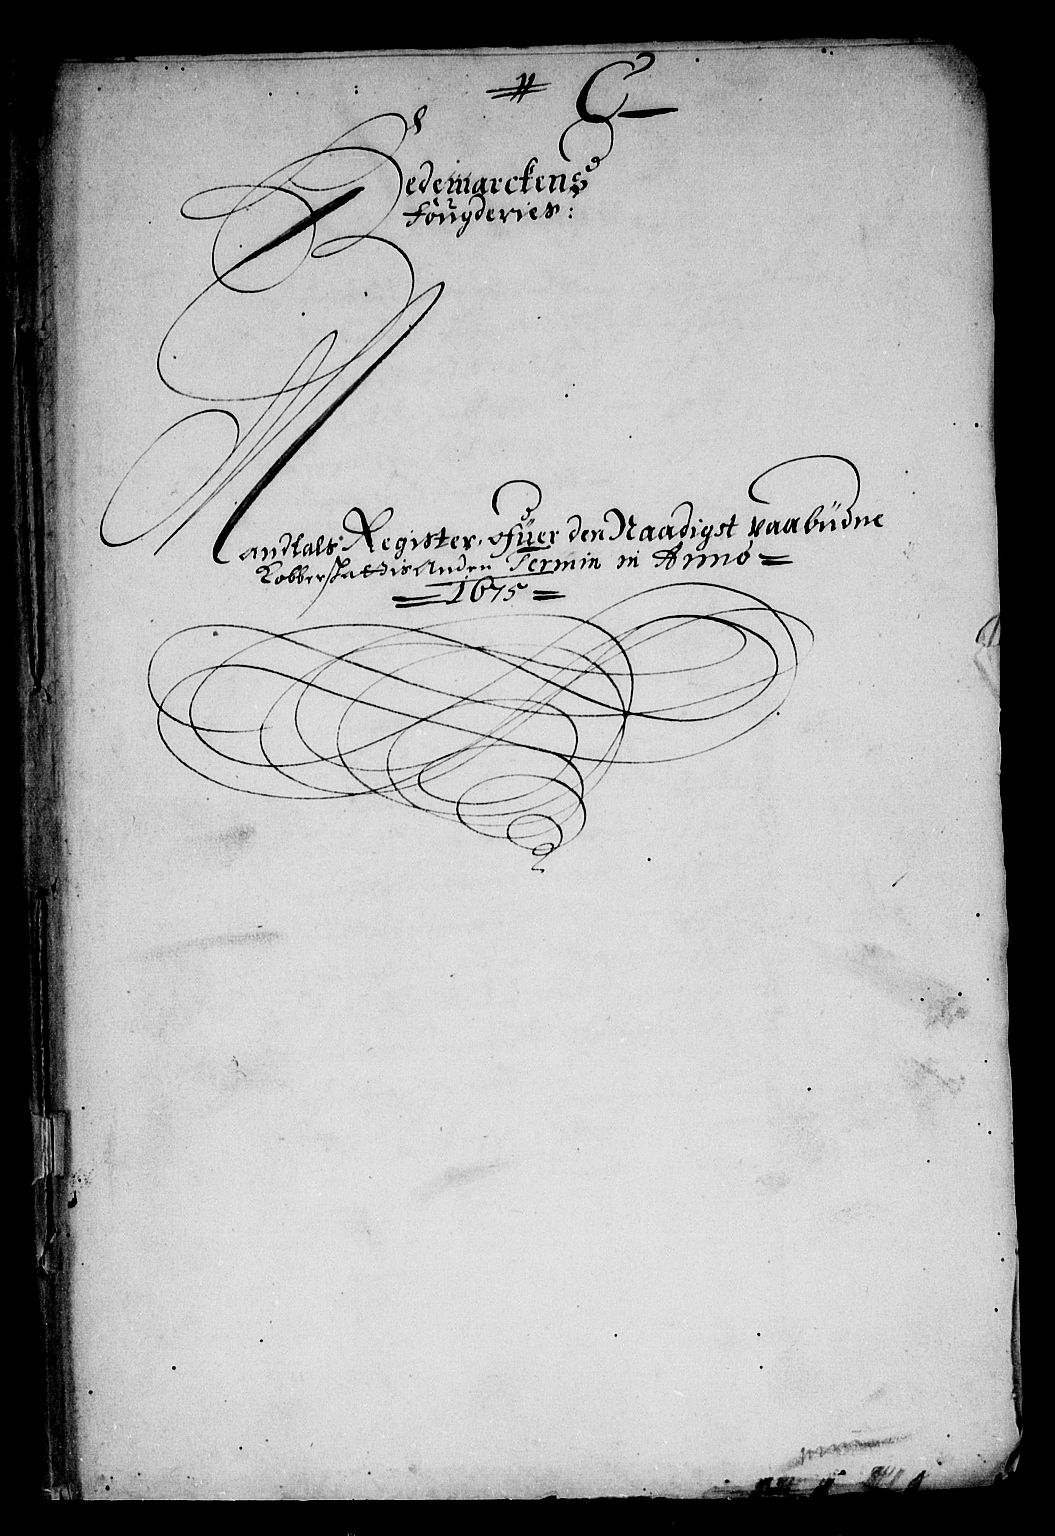 # C
Hedemarckens
fougderies:
Mandtals Register ofuer den Naadigst paabüdne
Kobberskattis Anden Termin in Anno =
= 1675 =